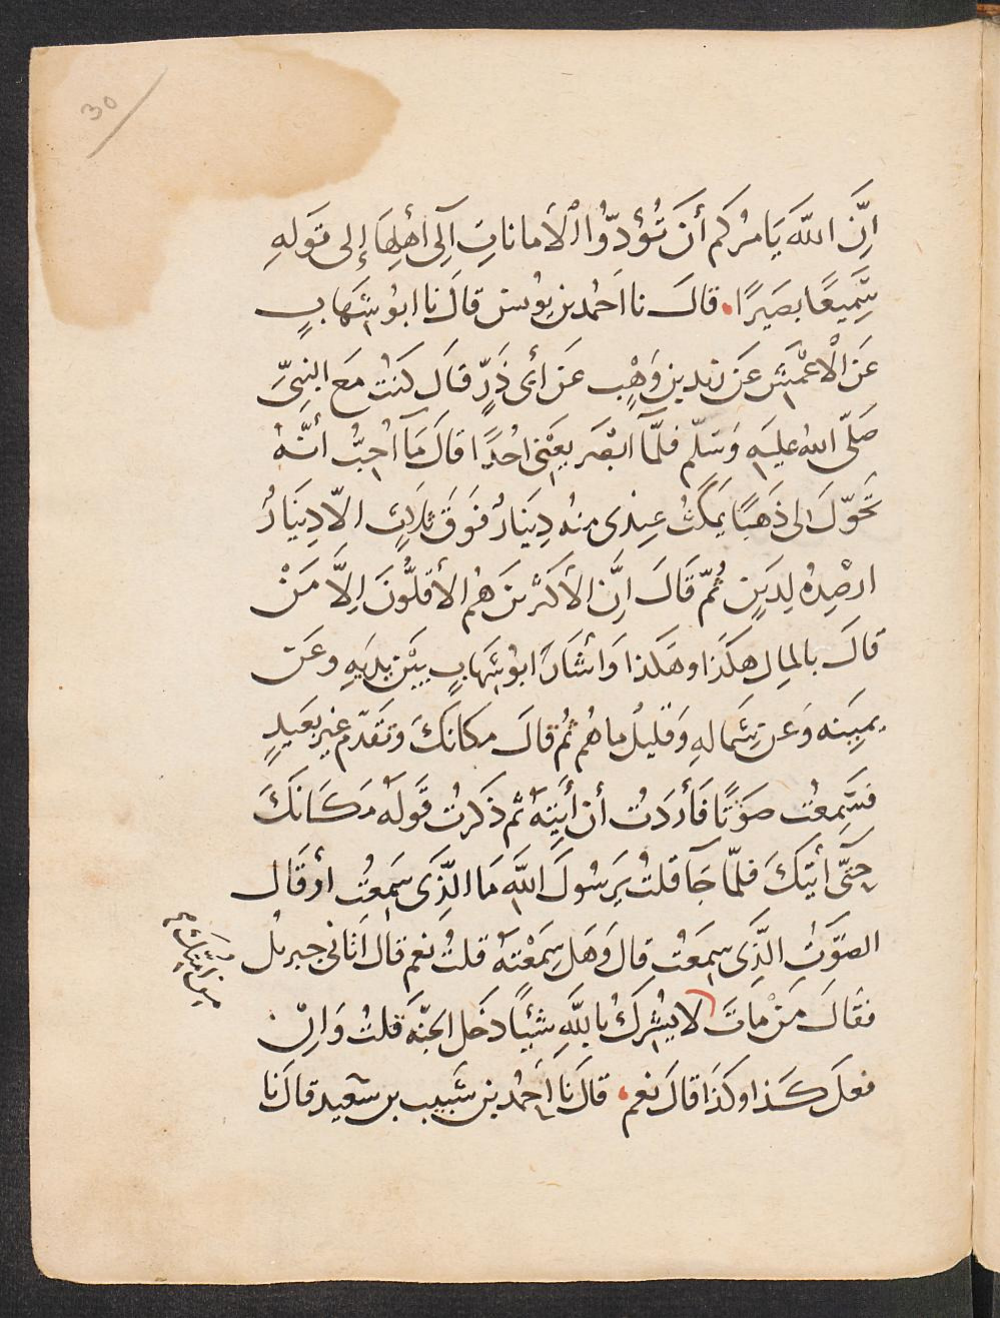 30
اِنَّ اللَّهَ يَامُرُكم أَنَ تُؤدّوُا الْأَمانَاتِ اَلِى أَهلِهَا إلى قَولِهِ
سَّمِيعًا بصَيرًا قالَ نا احَمدُ بن يوُنس قالَ نا ابوُ شِهَابٍ
عَن الْأعْمَشِ عَن زيد بن وَهْبٍ عَن أَبى ذَرٍّ قَال كنتُ مَعَ النبىِّ
صَلّى الله علَيهِ وَسَلّم فلمَّا ابْصَرَ يعَنِى احُدًا قالَ مَآ اُحِبُّ أنَّهُ
تَحَوّلَ لى ذَهَبًا يَمكُثُ عِندى منِهُ دِينَارٌ فوَقَ ثَلَاثٍ الاّ دِينَارً
ارصِدُه لِدَينٍ ثمُّ قَالَ اِنَّ الأكَثَرينَ هُم الأَقلُّونَ اِلاَّ مَنْ
قالَ بالمالِ هكَذا وهَكذا وَاشَارَ ابوُ شِهَابٍ بيَنَ يدَيهِ وعَن
يمِينِه وَعن شِمَالهِ وَقلَيلٌ ماهُم ثمُ قالَ مكانكَ وَتقَدّم غيرَ بعَيدٍ
فسَمِعُت صَوَتًا فَأردَتُ أن أتِيَهُ ثم ذَكَرتُ قَولَهُ مَكَانَكَ
حتىَّ أتيكَ فلمّا جَآ قلتُ يَرسُولَ اللَّهِ مَا الَّذِى سَمِعتُ اَو قَال
الصَوّتُ الَّذِى سِمعَتُ قالَ وَهَل سَمِعْتَهُ قلتُ نعم قالَ اَتانى جبريلُ
فقَالَ مَنْ ماتَ لا يشُرِكُ باللَّهِ شيئًا دَخَل الجَنّهَ قلتُ وَاِنْ
فعلَ كَذا وكَذَا قالَ نعم قالَ نَا احَمدُ بن شَبيِبِ بن سَعيدٍ قالَ نا
مِن اُمَّتِكَ صح